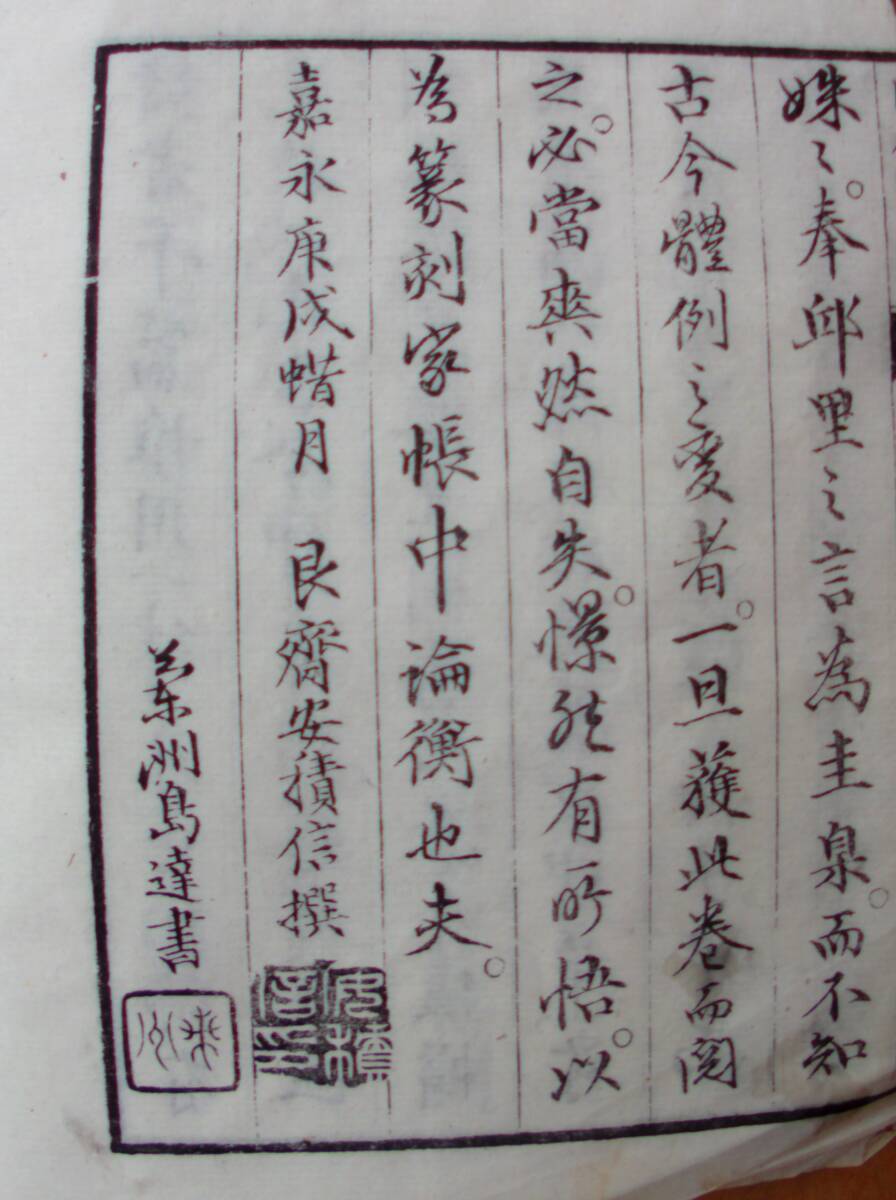 姝〻。奉邱里之言為圭臬。而不知
古今體例之變者。一旦獲此卷而閱
之。必當爽然自失。憬然有所悟。以
為篆刻家帳中論衡也夫。
嘉永庚戌蜡月　艮齋安積信撰
安積信印
蘭洲島達書